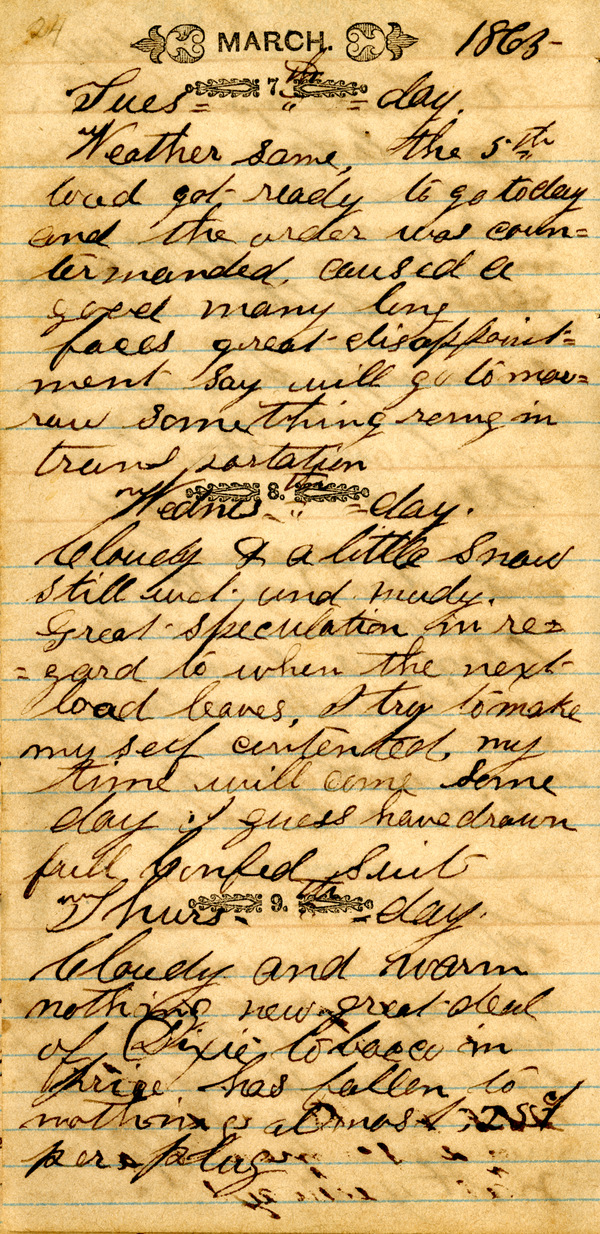 24 MARCH. 1865
7.th
Tues = " = day.
Weather same, the 5th
load got ready to go today
and the order was coun=
termanded, caused a
good many long
faces great disappoint=
ment say will go to mor=
row something rong in
transportation
8.th
Wednes - " = day.
Cloudy & a little snow
still wet and mudy.
Great speculation in re=
= gard to when the next
load leaves, I try to make
my self contented, my
time will come some
day I guess have drawn
full Confed Suit
9.th
Thurs - = day.
Cloudy and warm
nothing new great deal
of Dixie tobacco in
price has fallen to
nothing almost
per plug